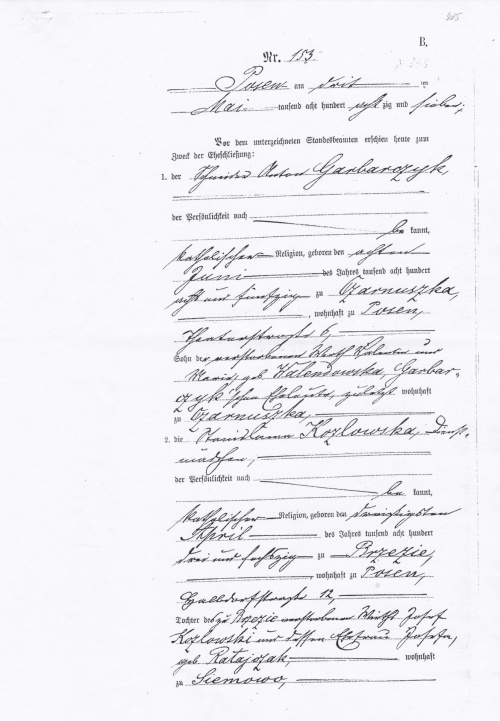 B.
Nr. 153.
Posen am drit ten
Mai tausend acht hundert acht zig und sieben,
Vor dem unterzeichneten Standesbeamten erschien heute zum
Zweck der Eheschließung:
1. der Schneider Anton Garbarczyk,
der Persönlichkeit nach
be kannt,
katholischer Religion, geboren den achten
Juni des Jahres tausend acht hundert
acht und fünfzig zu Czarnuszka,
, wohnhaft zu Posen,
Theaterstraße 6,
Sohn der verstorbenen Wirth Valentin und
Maria, geb. Walendowska, Garbar-
czyk'schen Eheleute, zuletzt wohnhaft
zu Czarnuszka,
2. die Stanislawa Kozlowska, Dienst-
mädchen,
der Persönlichkeit nach
be kannt,
katholischer Religion, geboren den dreißigsten
April des Jahres tausend acht hundert
drei und sechszig zu Brzezie,
, wohnhaft zu Posen,
Halbdorfstraße 12,
Tochter des zu Brzezie verstorbenen Wirths Josef
Kozlowski und dessen Ehefrau Josefa,
geb. Ratajczak, wohnhaft
zu Siemowo,